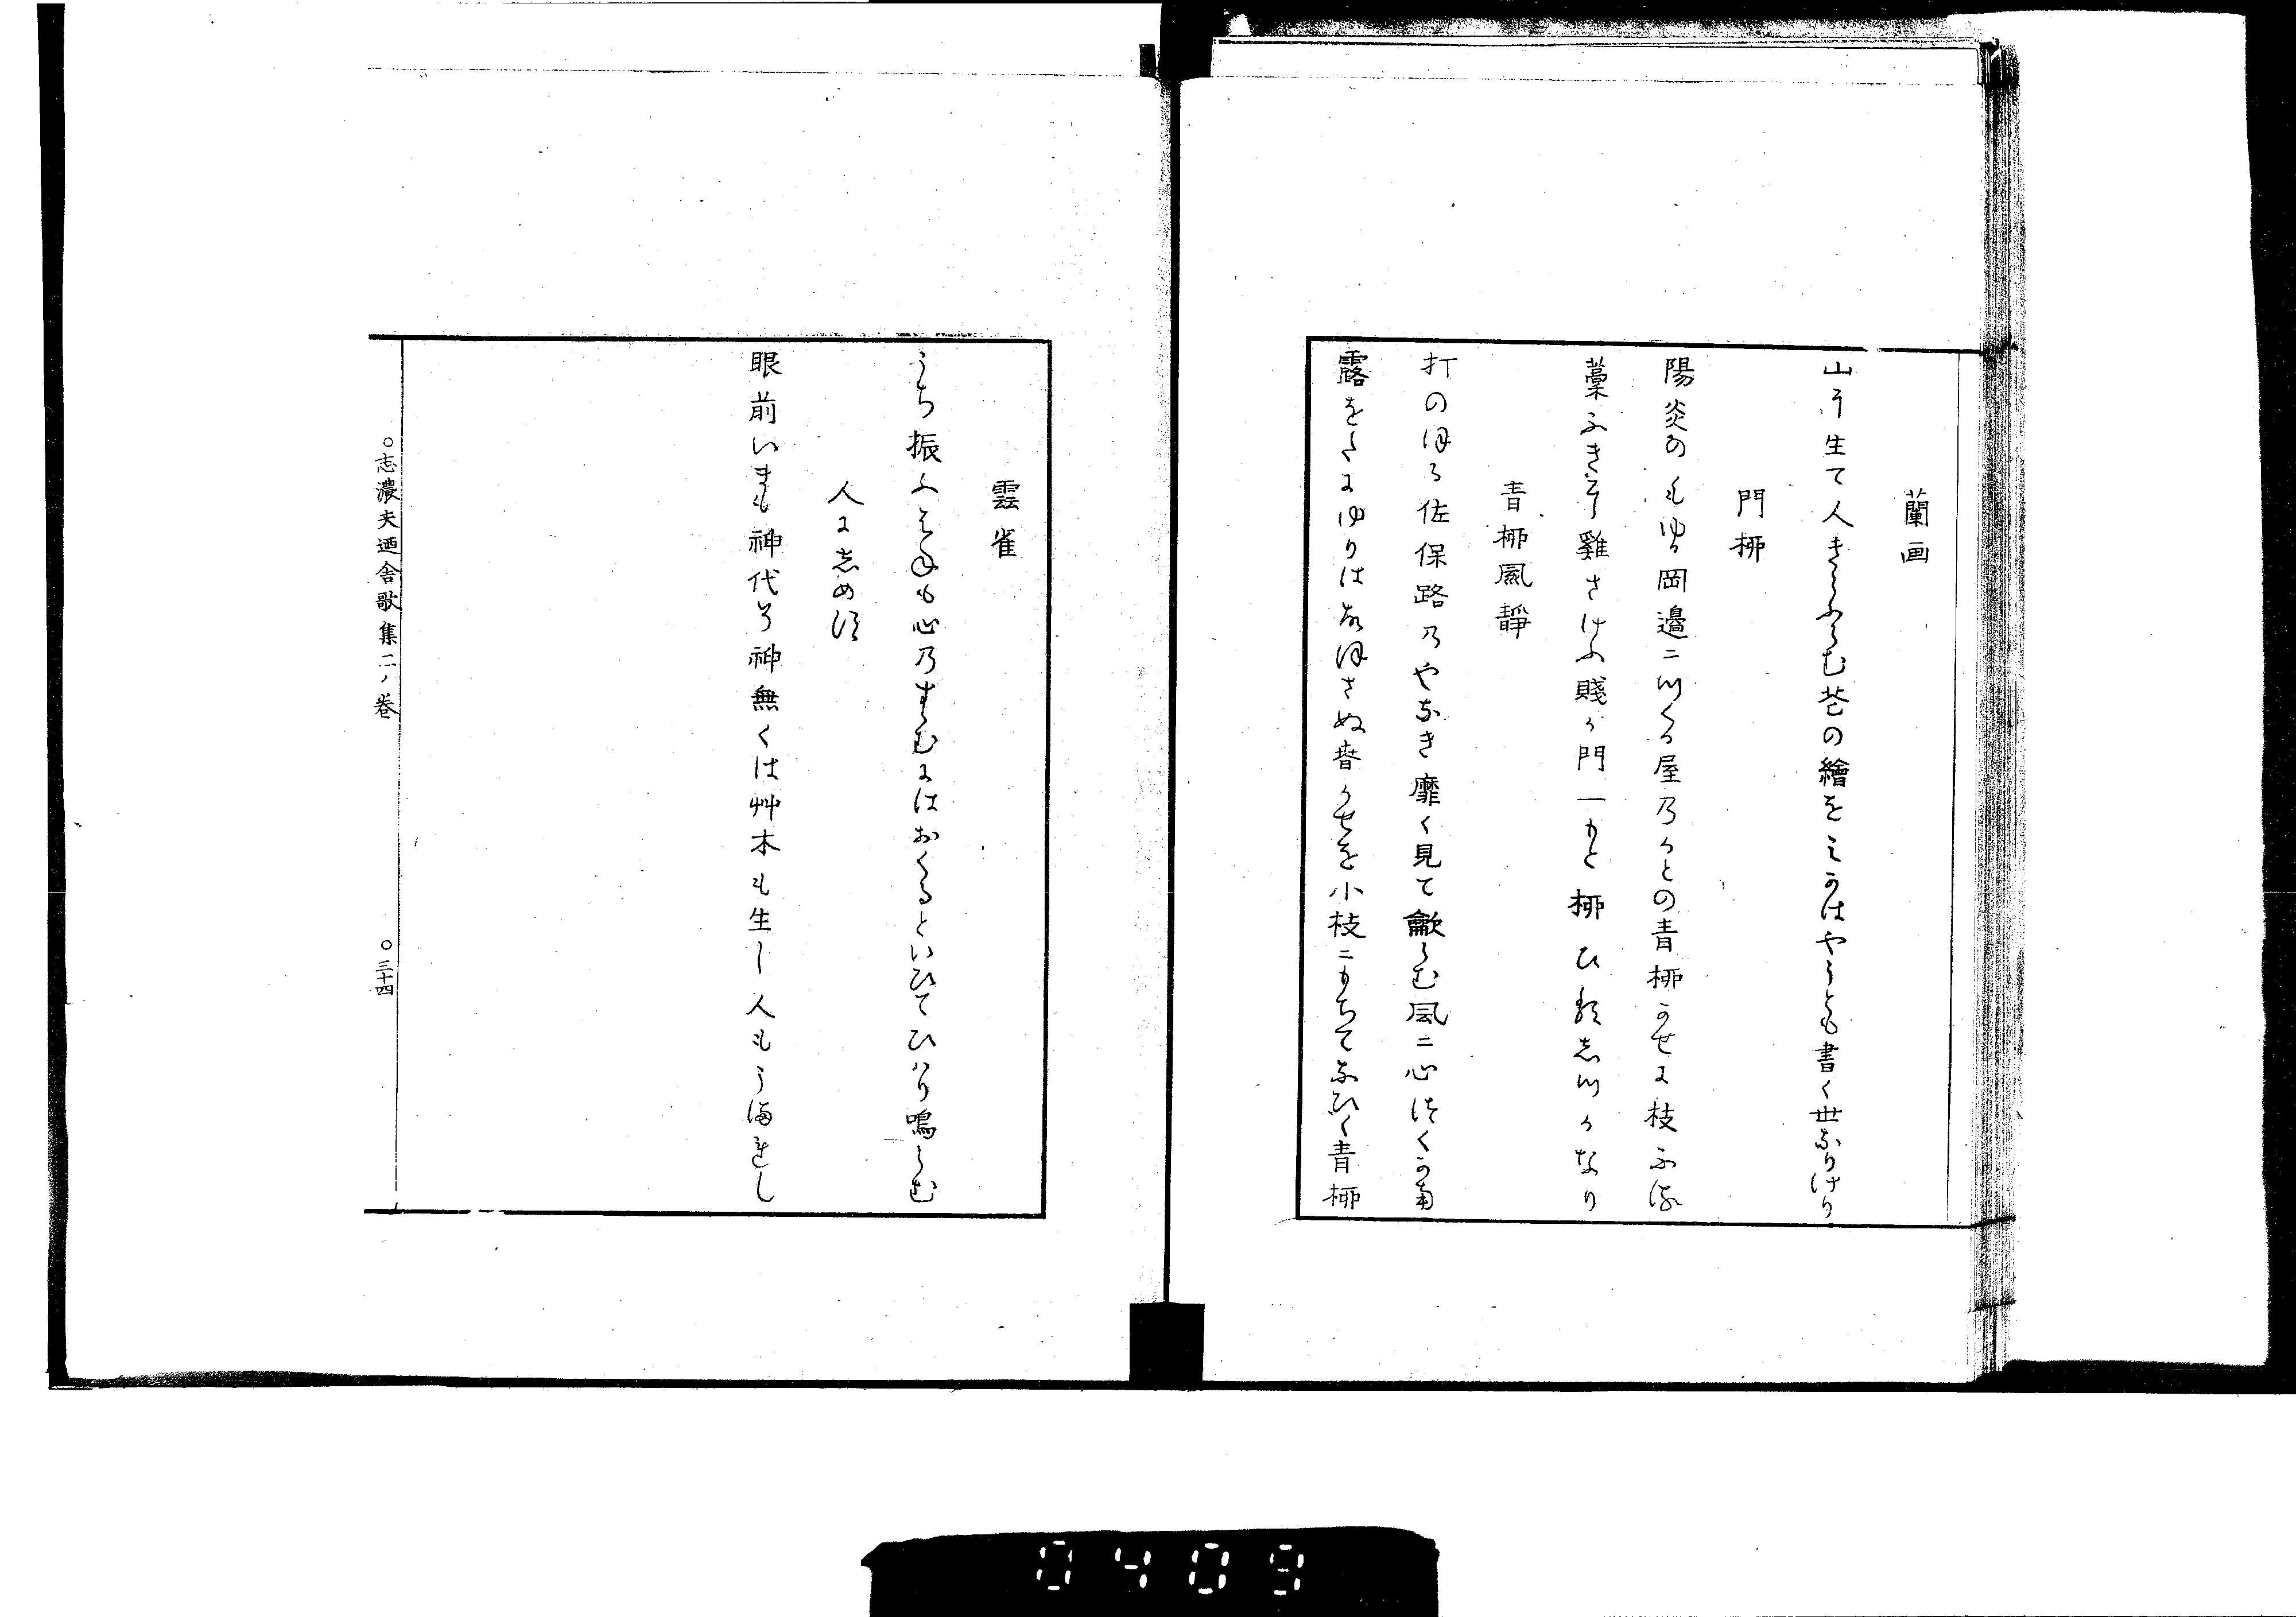 蘭画
山に生て人きらふらむ花の繪をこのはやうとも書く世なりけり
門栁
陽炎のもゆる岡邊ニつくる屋乃かとの青栁かせに枝ふる
藁ふき雞さけふ賤か門一もと栁ひるしつかなり
青栁風静
打のほる佐保路乃やなき靡く見て歈らむ風ニ心つくかな
露をたにゆりはなほさぬ春かせを小枝ニもちてなひく青栁
雲雀
うち振ふはねも心乃すむにはおくるといひてひはり鳴らむ
人にしめす
眼前いまも神代そ神無くは艸木も生し人もうまれし
○志濃夫廼舎歌集二ノ巻
○三十四
0409